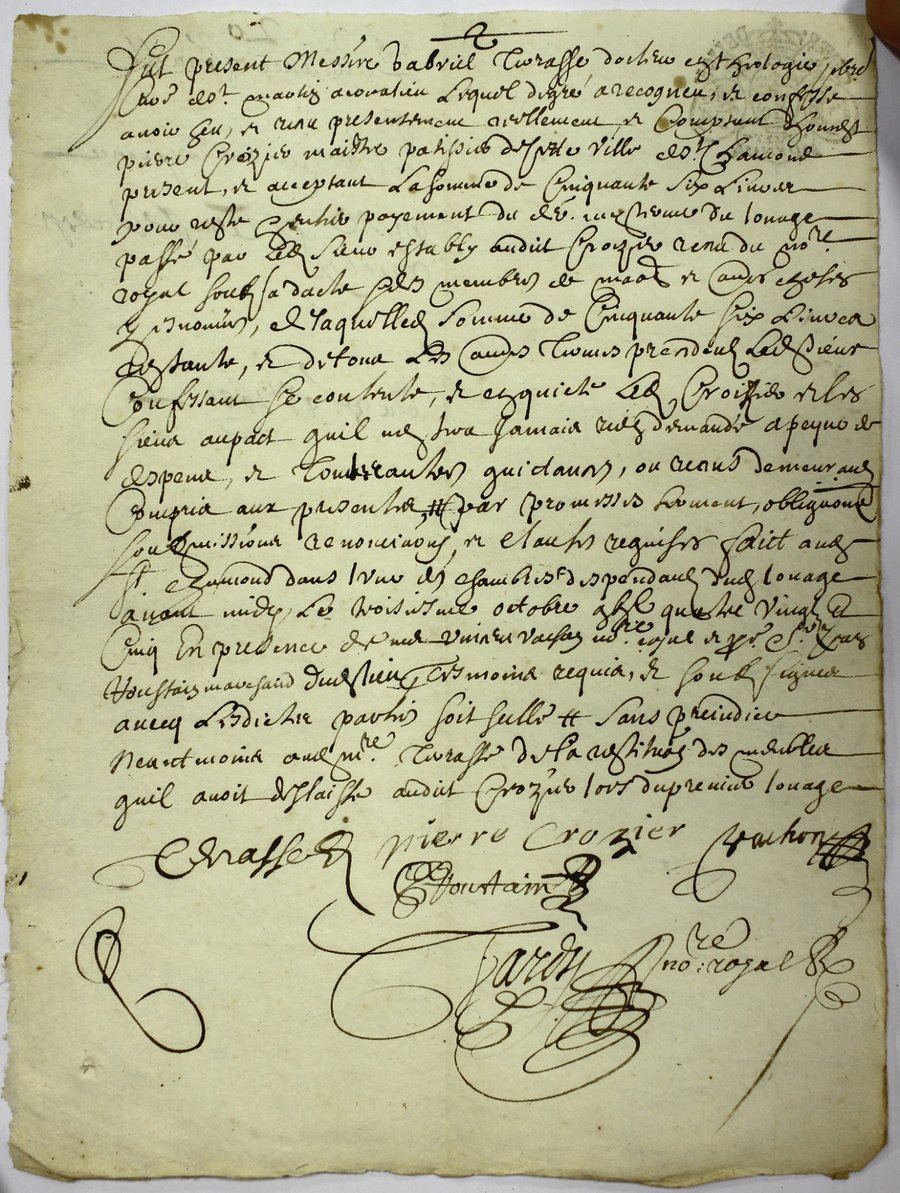 fut present Messire Gabriel Terasse docteur en theologie
curé de st. martin acoalieu Lequel de gré a recogneu, et confesse
avoir heu, et receu presentement reellement et Comptant d'honest
pierre Croizier maistre patissier de cette ville de st Chamond
present, et acceptant La somme de Cinquante six Livres
pour reste payement du du louage
passé par Led Sieur estably audit Croizier receu du nore.
royal soubs sa datte des membres de et autres choses
y enoncées, de laquelle somme de Cinquante six Livres
restante, et de tous Les autres termes Led sieur
Confessant se contente, et en quicte Led Croizier et les
siens au pact quil ne sera Jamais rien demandé a peyne de
despens, et toutes autres quictances, ou receus demeurant
Compris aux presentes # par promesses serment, obligations
soubmissions renonciations, et clauses requises faict aud
st chamond dans l'une des chambres despendant dud louage
avant midy, Le troisiesme octobre quatre vingt et
Cinq En presence de me vachon nore royal et sr
houstain marchand dud lieu tesmoins requis, et soubs signés
avecq Lesdictes parties soit sellé # Sans preiudice
neantmoins aud mre. Terasse de la restitution des meubles
quil avoit delaissé audit Crozier lors du premier louage
Terasse pierre Crozier Vachon
houstain
Jardy nore royal